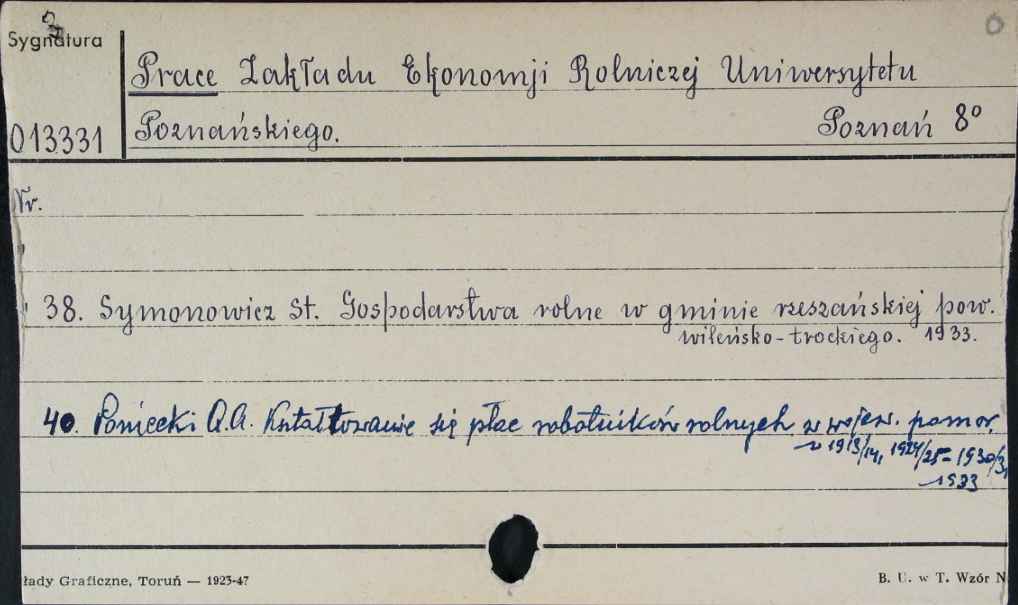 Sygnatura
Prace Zakładu Ekonomji Rolniczej Uniwersytetu
013331 Poznańskiego. Poznań 8°
Nr.
" 38. Symonowicz St. Gospodarstwa rolne w gminie rzeszańskiej pow.
wileńsko-trockiego. 1933.
40. Poniecki A.A. Kształtowanie się płac robotników rolnych w wojew. pomor.
w 1913/14, 1924/25 - 1930/31
1933
łady Graficzne, Toruń — 1923-47
B. U. w T. Wzór N